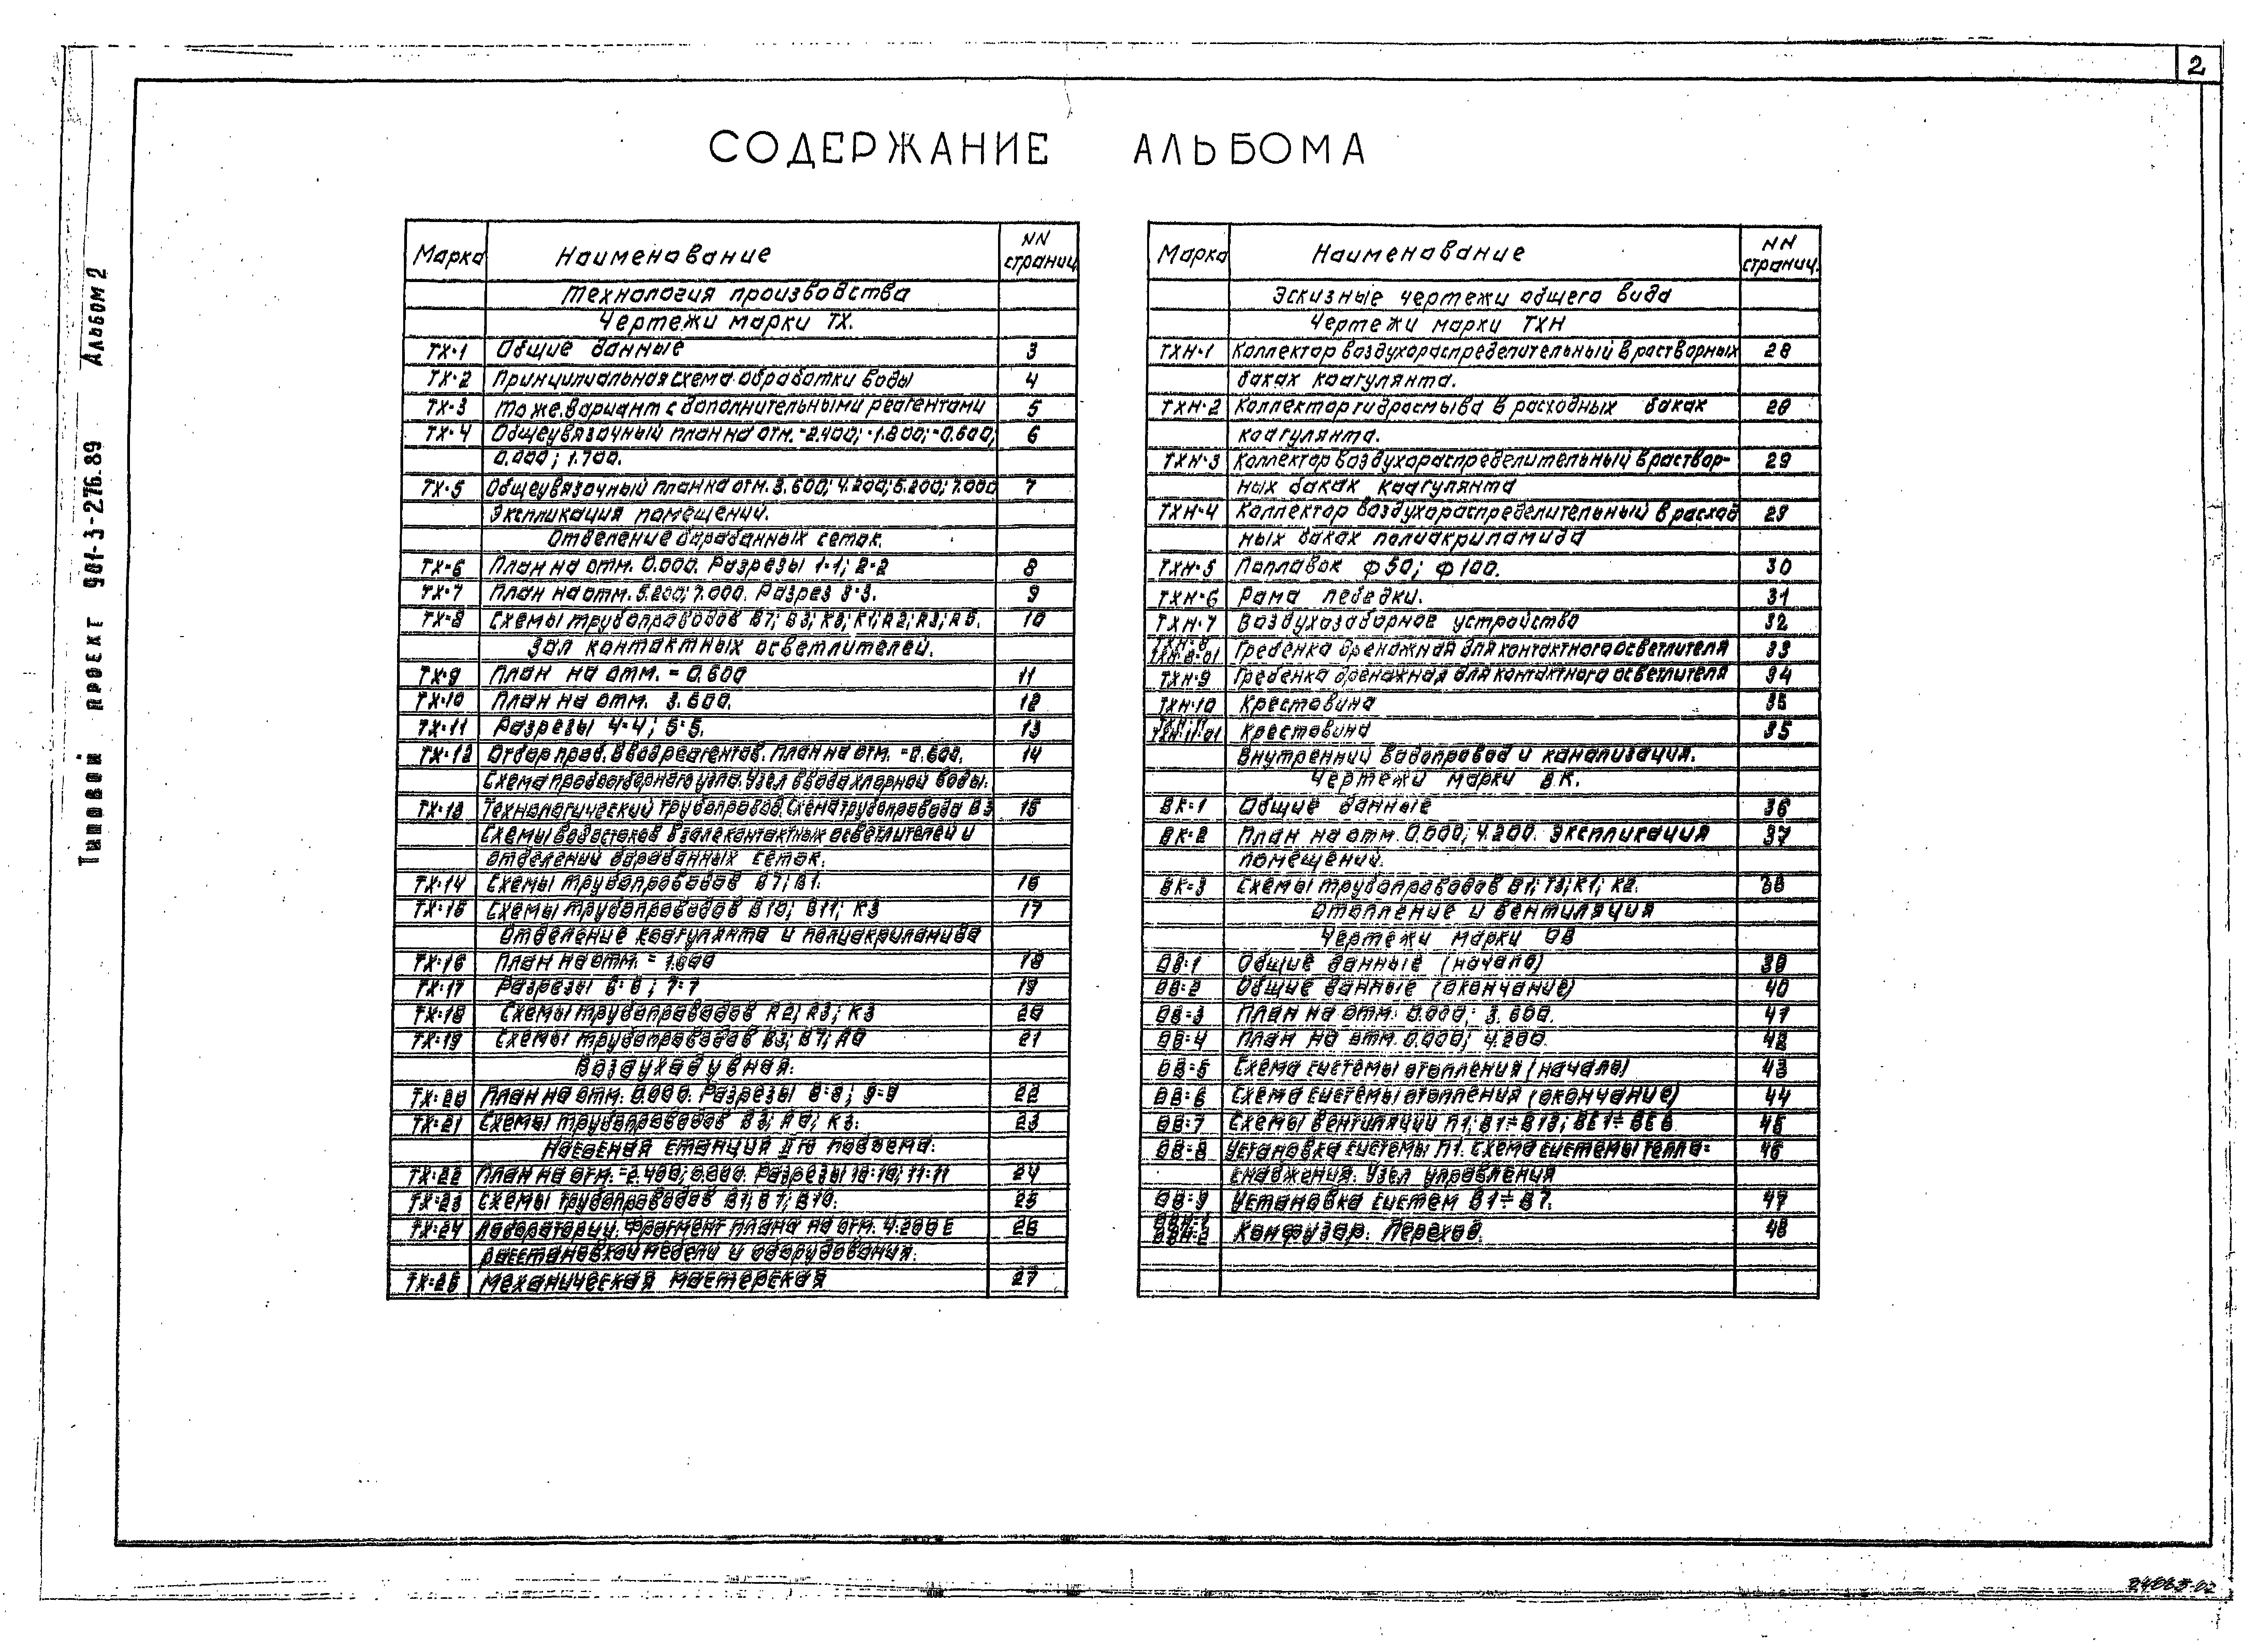 2
СОДЕРЖАНИЕ АЛЬБОМА
Типовой проект 901-3-276.89 Альбом 2
Марка Наименование NN страниц
Технология производства
Чертежи марки ТХ.
ТХ-1 Общие данные 3
ТХ-2 Принципиальная схема обработки воды 4
ТХ-3 То же. Вариант с дополнительными реагентами 5
ТХ-4 Общеувязочный план на отм. -2.400; -1.800; -0.600; 6
0.000; 1.700.
ТХ-5 Общеувязочный план на отм. 3.600; 4.200; 5.200; 7.000 7
Экспликация помещений.
Отделение барабанных сеток.
ТХ-6 План на отм. 0.000. Разрезы 1-1; 2-2 8
ТХ-7 План на отм. 5.200; 7.000. Разрез 3-3. 9
ТХ-8 Схемы трубопроводов В7; В3; К3; К1; R2; R3; R5. 10
Зал контактных осветлителей.
ТХ-9 План на отм. -0.600 11
ТХ-10 План на отм. 3.600. 12
ТХ-11 Разрезы 4-4; 5-5. 13
ТХ-12 Отбор проб. Ввод реагентов. План на отм. -0.600. 14
Схема пробоотборного узла. Узел ввода хлорной воды.
ТХ-13 Технологический трубопровод. Схема трубопровода В3 15
Схемы водостоков в зале контактных осветлителей и
отделений барабанных сеток.
ТХ-14 Схемы трубопроводов В7; В1. 16
ТХ-15 Схемы трубопроводов В10; В11; К3 17
Отделение коагулянта и полиакриламида
ТХ-16 План на отм. -1.800 18
ТХ-17 Разрезы 6-6; 7-7 19
ТХ-18 Схемы трубопроводов R2; R3; К3 20
ТХ-19 Схемы трубопроводов В3; В7; А0 21
Воздуходувная.
ТХ-20 План на отм. 0.000. Разрезы 8-8; 9-9 22
ТХ-21 Схемы трубопроводов В3; А0; К3. 23
Насосная станция II го подъема.
ТХ-22 План на отм. -2.400; 0.000. Разрезы 10-10; 11-11 24
ТХ-23 Схемы трубопроводов В1; В7; В10. 25
ТХ-24 Лаборатории. Фрагмент плана на отм. 4.200 с 26
расстановкой мебели и оборудования.
ТХ-25 Механическая мастерская 27
Марка Наименование NN страниц.
Эскизные чертежи общего вида
Чертежи марки ТХН
ТХН-1 Коллектор воздухораспределительный в растворных 28
баках коагулянта.
ТХН-2 Коллектор гидросмыва в расходных баках 28
коагулянта.
ТХН-3 Коллектор воздухораспределительный в раствор- 29
ных баках коагулянта
ТХН-4 Коллектор воздухораспределительный в расход 29
ных баках полиакриламида
ТХН-5 Поплавок ф50; ф100. 30
ТХН-6 Рама лебедки. 31
ТХН-7 Воздухозаборное устройство 32
ТХН-8 ТХН-8-01 Гребенка дренажная для контактного осветлителя 33
ТХН-9 Гребенка дренажная для контактного осветлителя 34
ТХН-10 Крестовина 35
ТХН-11 ТХН-11-01 Крестовина 35
Внутренний водопровод и канализация.
Чертежи марки ВК.
ВК-1 Общие данные 36
ВК-2 План на отм. 0.000; 4.200. Экспликация 37
помещений.
ВК-3 Схемы трубопроводов В1; Т3; К1; К2. 38
Отопление и вентиляция
Чертежи марки ОВ
ОВ-1 Общие данные (начало) 39
ОВ-2 Общие данные (окончание) 40
ОВ-3 План на отм. 0.000; 3.600. 41
ОВ-4 План на отм. 0.000; 4.200. 42
ОВ-5 Схема системы отопления (начало) 43
ОВ-6 Схема системы отопления (окончание) 44
ОВ-7 Схемы вентиляции П1; В1÷В13; ВЕ1÷ВЕ6 45
ОВ-8 Установка системы П1. Схема системы тепло- 46
снабжения. Узел управления
ОВ-9 Установка систем В1÷В7. 47
ОВН-1 ОВН-2 Конфузор. Переход. 48